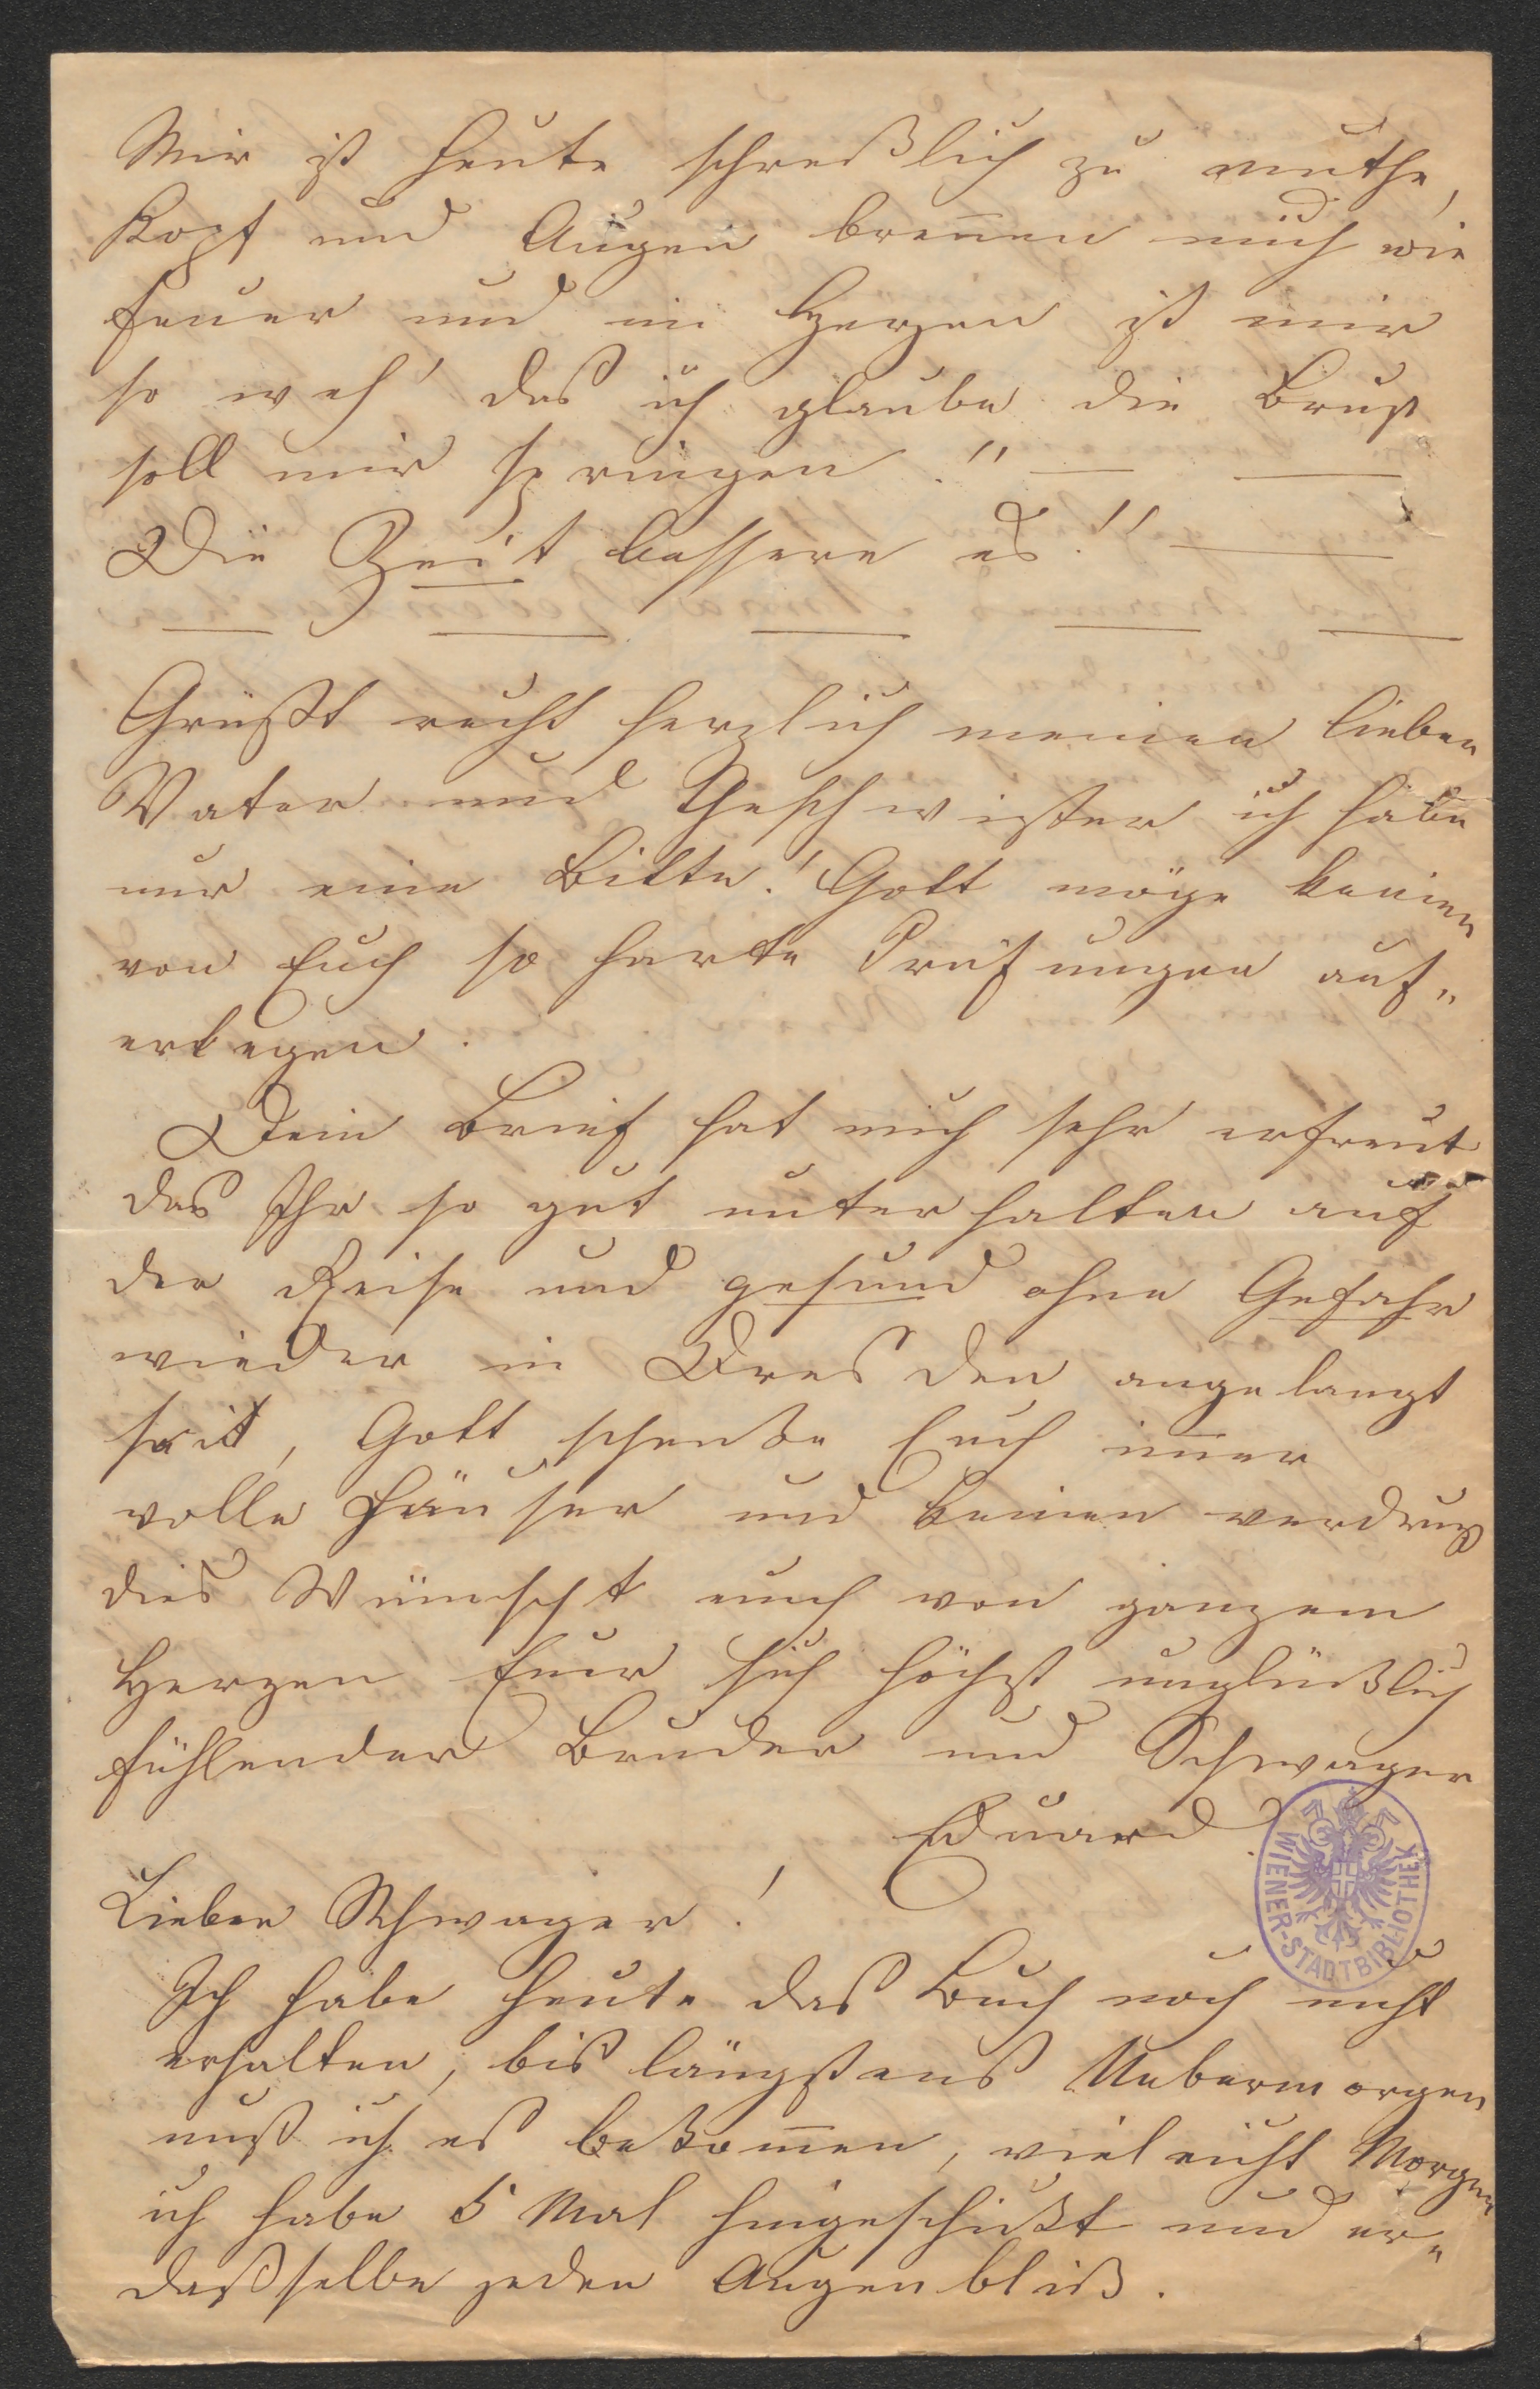 Mir ist heute schrecklich zu muthe,
Kopf und Augen brennen mich wie
Feuer und im Herzen ist mir
so weh' das ich glaube die Brust
soll mir springen." — —
Die Zeit bessere es!! —
— — — — —
Grüsst recht herzlich meinen lieben
Vater und Geschwister ich habe
nur eine Bitte! Gott möge keinen
von Euch so harte Prüfungen auf„
erlegen.
Dein Brief hat mich sehr erfreut
das Ihr so gut unterhalten auf
der Reise und gesund ohne Gefahr
wieder in Dresden angelangt
seit, Gott schenke Euch im̅er
volle Häuser und keinen verdruß
dies Wünscht euch von ganzem
Herzen Euer sich höchst unglücklich
fühlender Bruder und Schwager
Eduard
Lieber Schwager!
Ich habe heute das Buch noch nicht
erhalten, bis längstens Uebermorgen
muß ich es bekom̅en, vieleicht Morgen
ich habe 5 Mal hingeschickt und er„
daßselbe jeden Augenblick.
WIENER-STADTBIBLIOTHEK